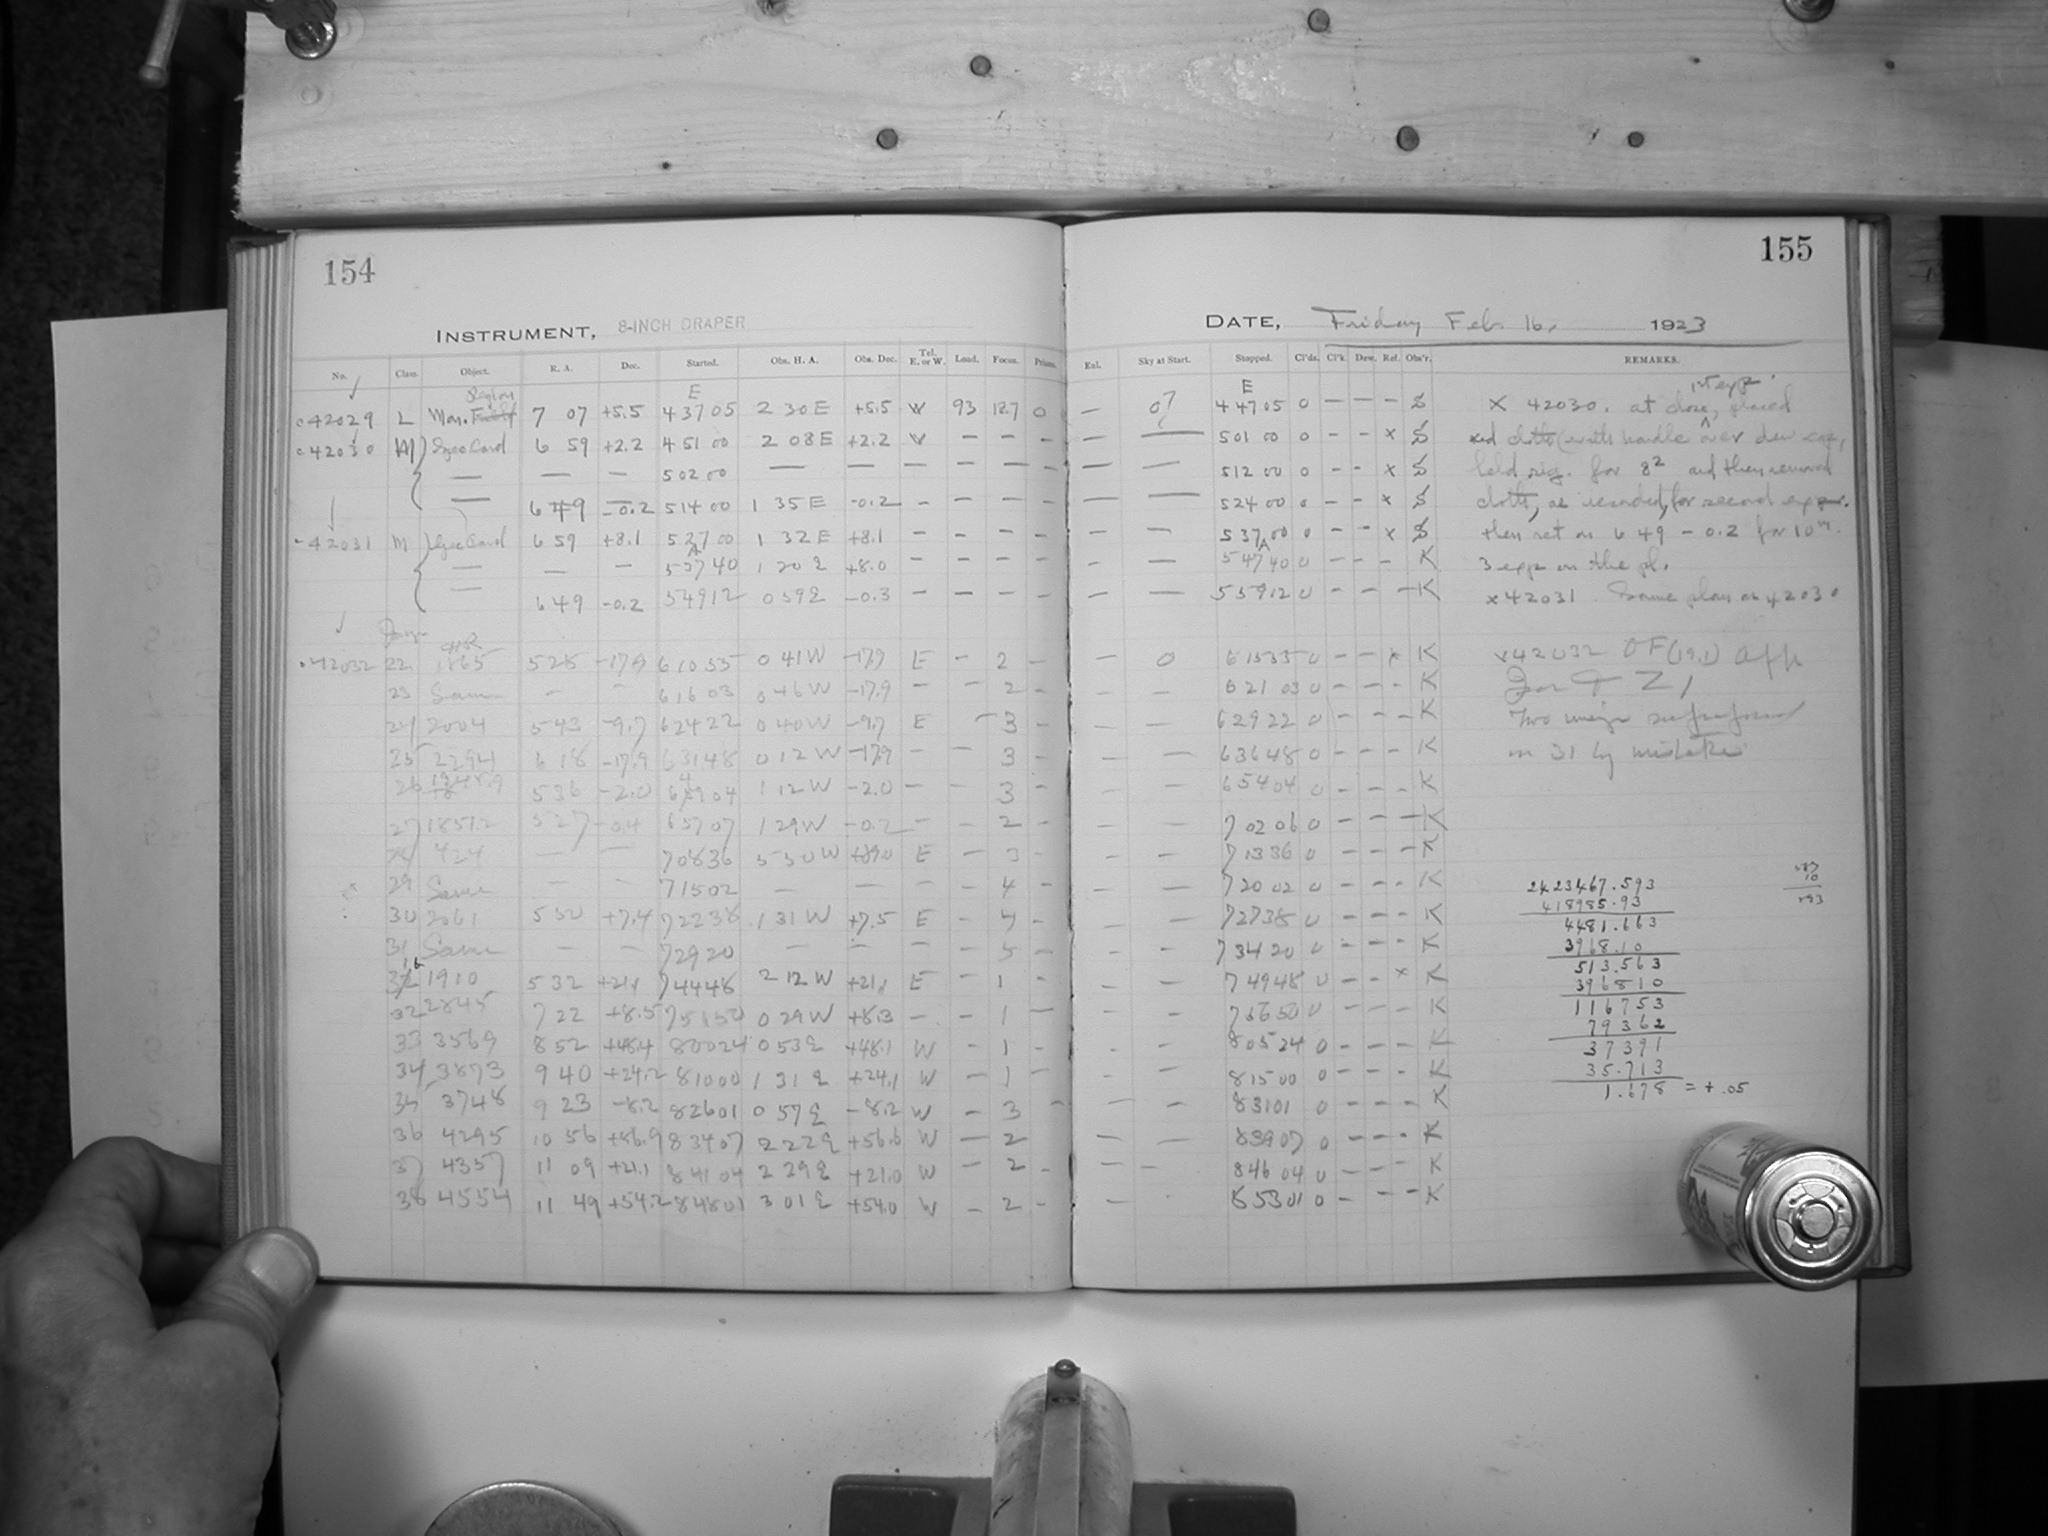 154
INSTRUMENT, 8-INCH DRAPER
No. Class. Object. R. A. Dec. Started. Obs. H. A. Obs. Dec. Tel. E. or W. Load. Focus. Prisms.
Region
E
42029 L Mon. 7 07 +5.5 4 37 05 2 30 E +5.5 W 93 12.7 0
42030 M See Card 6 59 +2.2 4 51 00 2 08 E +2.2 W - - -
— — — 5 02 00 — — — — — —
— 6 49 -0.2 5 14 00 1 35 E -0.2 - - - -
42031 M See Card 6 59 +8.1 5 27 00 1 32 E +8.1 - - - -
A
— — — 5 37 40 1 20 E +8.0 - - - -
— 6 49 -0.2 5 49 12 0 59 E -0.3 - - - -
42032 22 1865 5 28 -17.9 6 10 35 0 41 W -17.9 E - 2 -
23 Same - - 6 16 03 0 46 W -17.9 - - 2 -
24 2004 5 43 -9.7 6 24 22 0 40 W -9.7 E - 3 -
25 2294 6 18 -17.9 6 31 48 0 12 W -17.9 - - 3 -
26 5 36 -2.0 6 49 04 1 12 W -2.0 - - 3 -
27 1851.2 5 27 -0.4 6 57 07 1 29 W -0.2 - - 2 -
28 424 — — 7 08 36 5 50 W +89.0 E - 3 -
29 Same — - 7 15 02 — — - - 4 -
30 2061 5 50 +7.4 7 22 38 1 31 W +7.5 E - 5 -
31 Same — — 7 29 20 — — - - 5 -
1910 5 32 +21.1 7 44 48 2 12 W +21.1 E - 1 -
32 2845 7 22 +8.5 7 51 50 0 29 W +8.3 - - 1 -
33 3569 8 52 +48.4 8 00 24 0 53 E +48.1 W - 1 -
34 3873 9 40 +24.2 8 10 00 1 31 E +24.1 W - 1 -
35 3748 9 23 -8.2 8 26 01 0 57 E -8.2 W - 3 -
36 4295 10 56 +56.9 8 34 07 2 22 E +56.6 W - 2 -
37 4357 11 09 +21.1 8 41 04 2 29 E +21.0 W - 2 -
38 4554 11 49 +54.2 8 48 01 3 01 E +54.0 W - 2 -
155
DATE, Friday Feb. 16, 1923
Exl. Sky at Start. Stopped. Cl'ds. Cl'k. Dew. Ref. Obs'r. REMARKS.
E
— 07 4 47 05 0 - - - S
— — 5 01 00 0 - - x S
— — 5 12 00 0 - - x S
— — 5 24 00 0 - - x S
— — 5 37 00 0 - - x S
A
— — 5 47 40 0 - - - K
— — 5 59 12 0 - - - K
— 0 6 15 35 0 - - x K
- - 6 21 03 0 - - - K
- - 6 29 22 0 - - - K
- — 6 36 48 0 - - - K
- - 6 54 04 0 - - - K
- - 7 02 06 0 - - - K
- - 7 13 36 0 - - - K
- - 7 20 02 0 - - - K
- — 7 27 38 0 - - - K
- - 7 34 20 0 - - - K
- - 7 49 48 0 - - x K
- - 7 56 50 0 - - - K
- - 8 05 24 0 - - - K
- - 8 15 00 0 - - - K
- - 8 31 01 0 - - - K
- - 8 39 07 0 - - - K
- - 8 46 04 0 - - - K
- - 8 53 01 0 - - - K
1st exp.
x 42030. at close, placed
cloth (with handle over dew cap,
held for and then removed
cloth, as recorded, for second exp.
then set on 6 49 - 0.2 for 10m.
3 exp on the pl.
x 42031. Same plan as 42030
x42032 OF (19.1) off
Two
on 31 by mistake
2423467.593
418985.93
4481.663
3968.10
513.563
396810
116753
79362
37391
35.713
1.678 = +.05